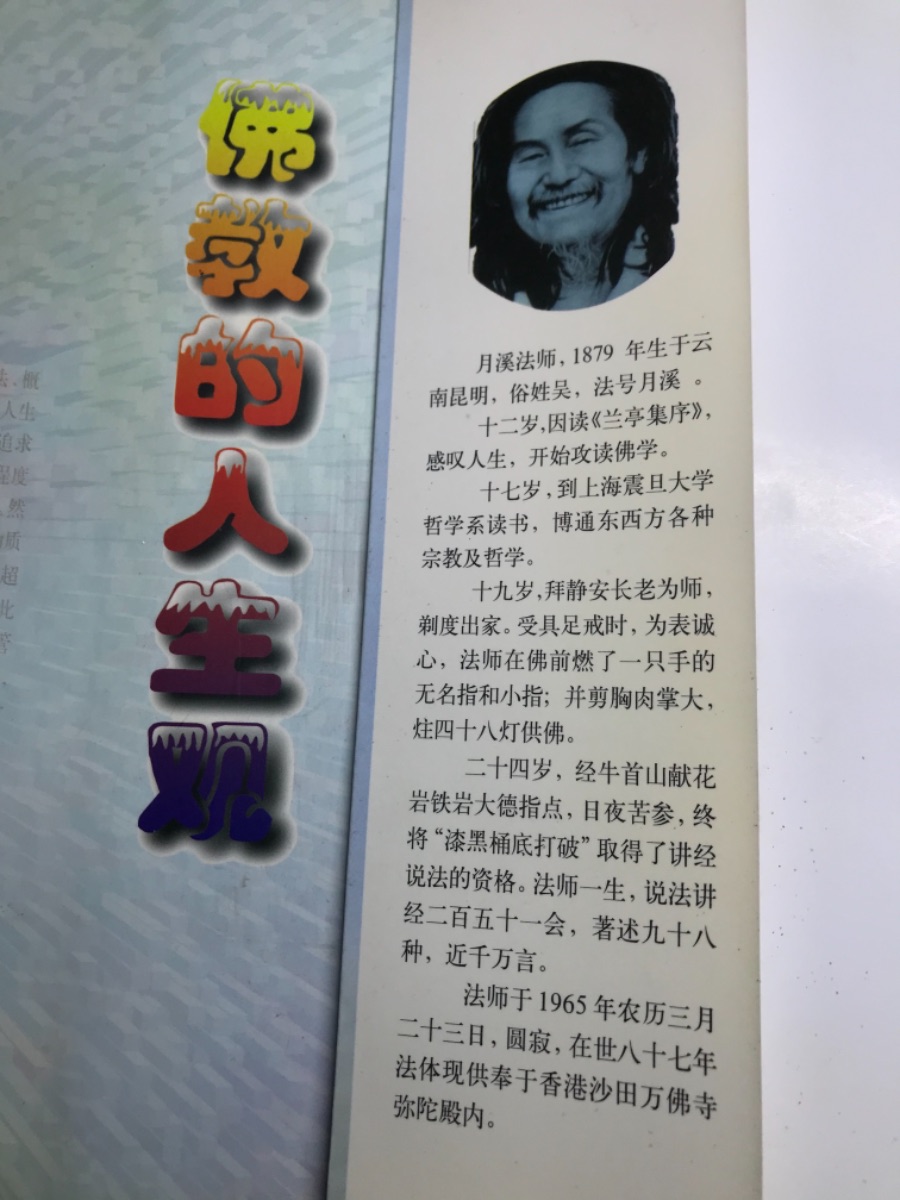 佛教的人生观
月溪法师，1879 年生于云
南昆明，俗姓吴，法号月溪 。
十二岁，因读《兰亭集序》，
感叹人生，开始攻读佛学。
十七岁，到上海震旦大学
哲学系读书，博通东西方各种
宗教及哲学。
十九岁，拜静安长老为师，
剃度出家。受具足戒时，为表诚
心，法师在佛前燃了一只手的
无名指和小指；并剪胸肉掌大，
炷四十八灯供佛。
二十四岁，经牛首山献花
岩铁岩大德指点，日夜苦参，终
将“漆黑桶底打破”取得了讲经
说法的资格。法师一生，说法讲
经二百五十一会，著述九十八
种，近千万言。
法师于1965年农历三月
二十三日，圆寂，在世八十七年
法体现供奉于香港沙田万佛寺
弥陀殿内。
法、概
人生
追求
程度
然
质
超
此